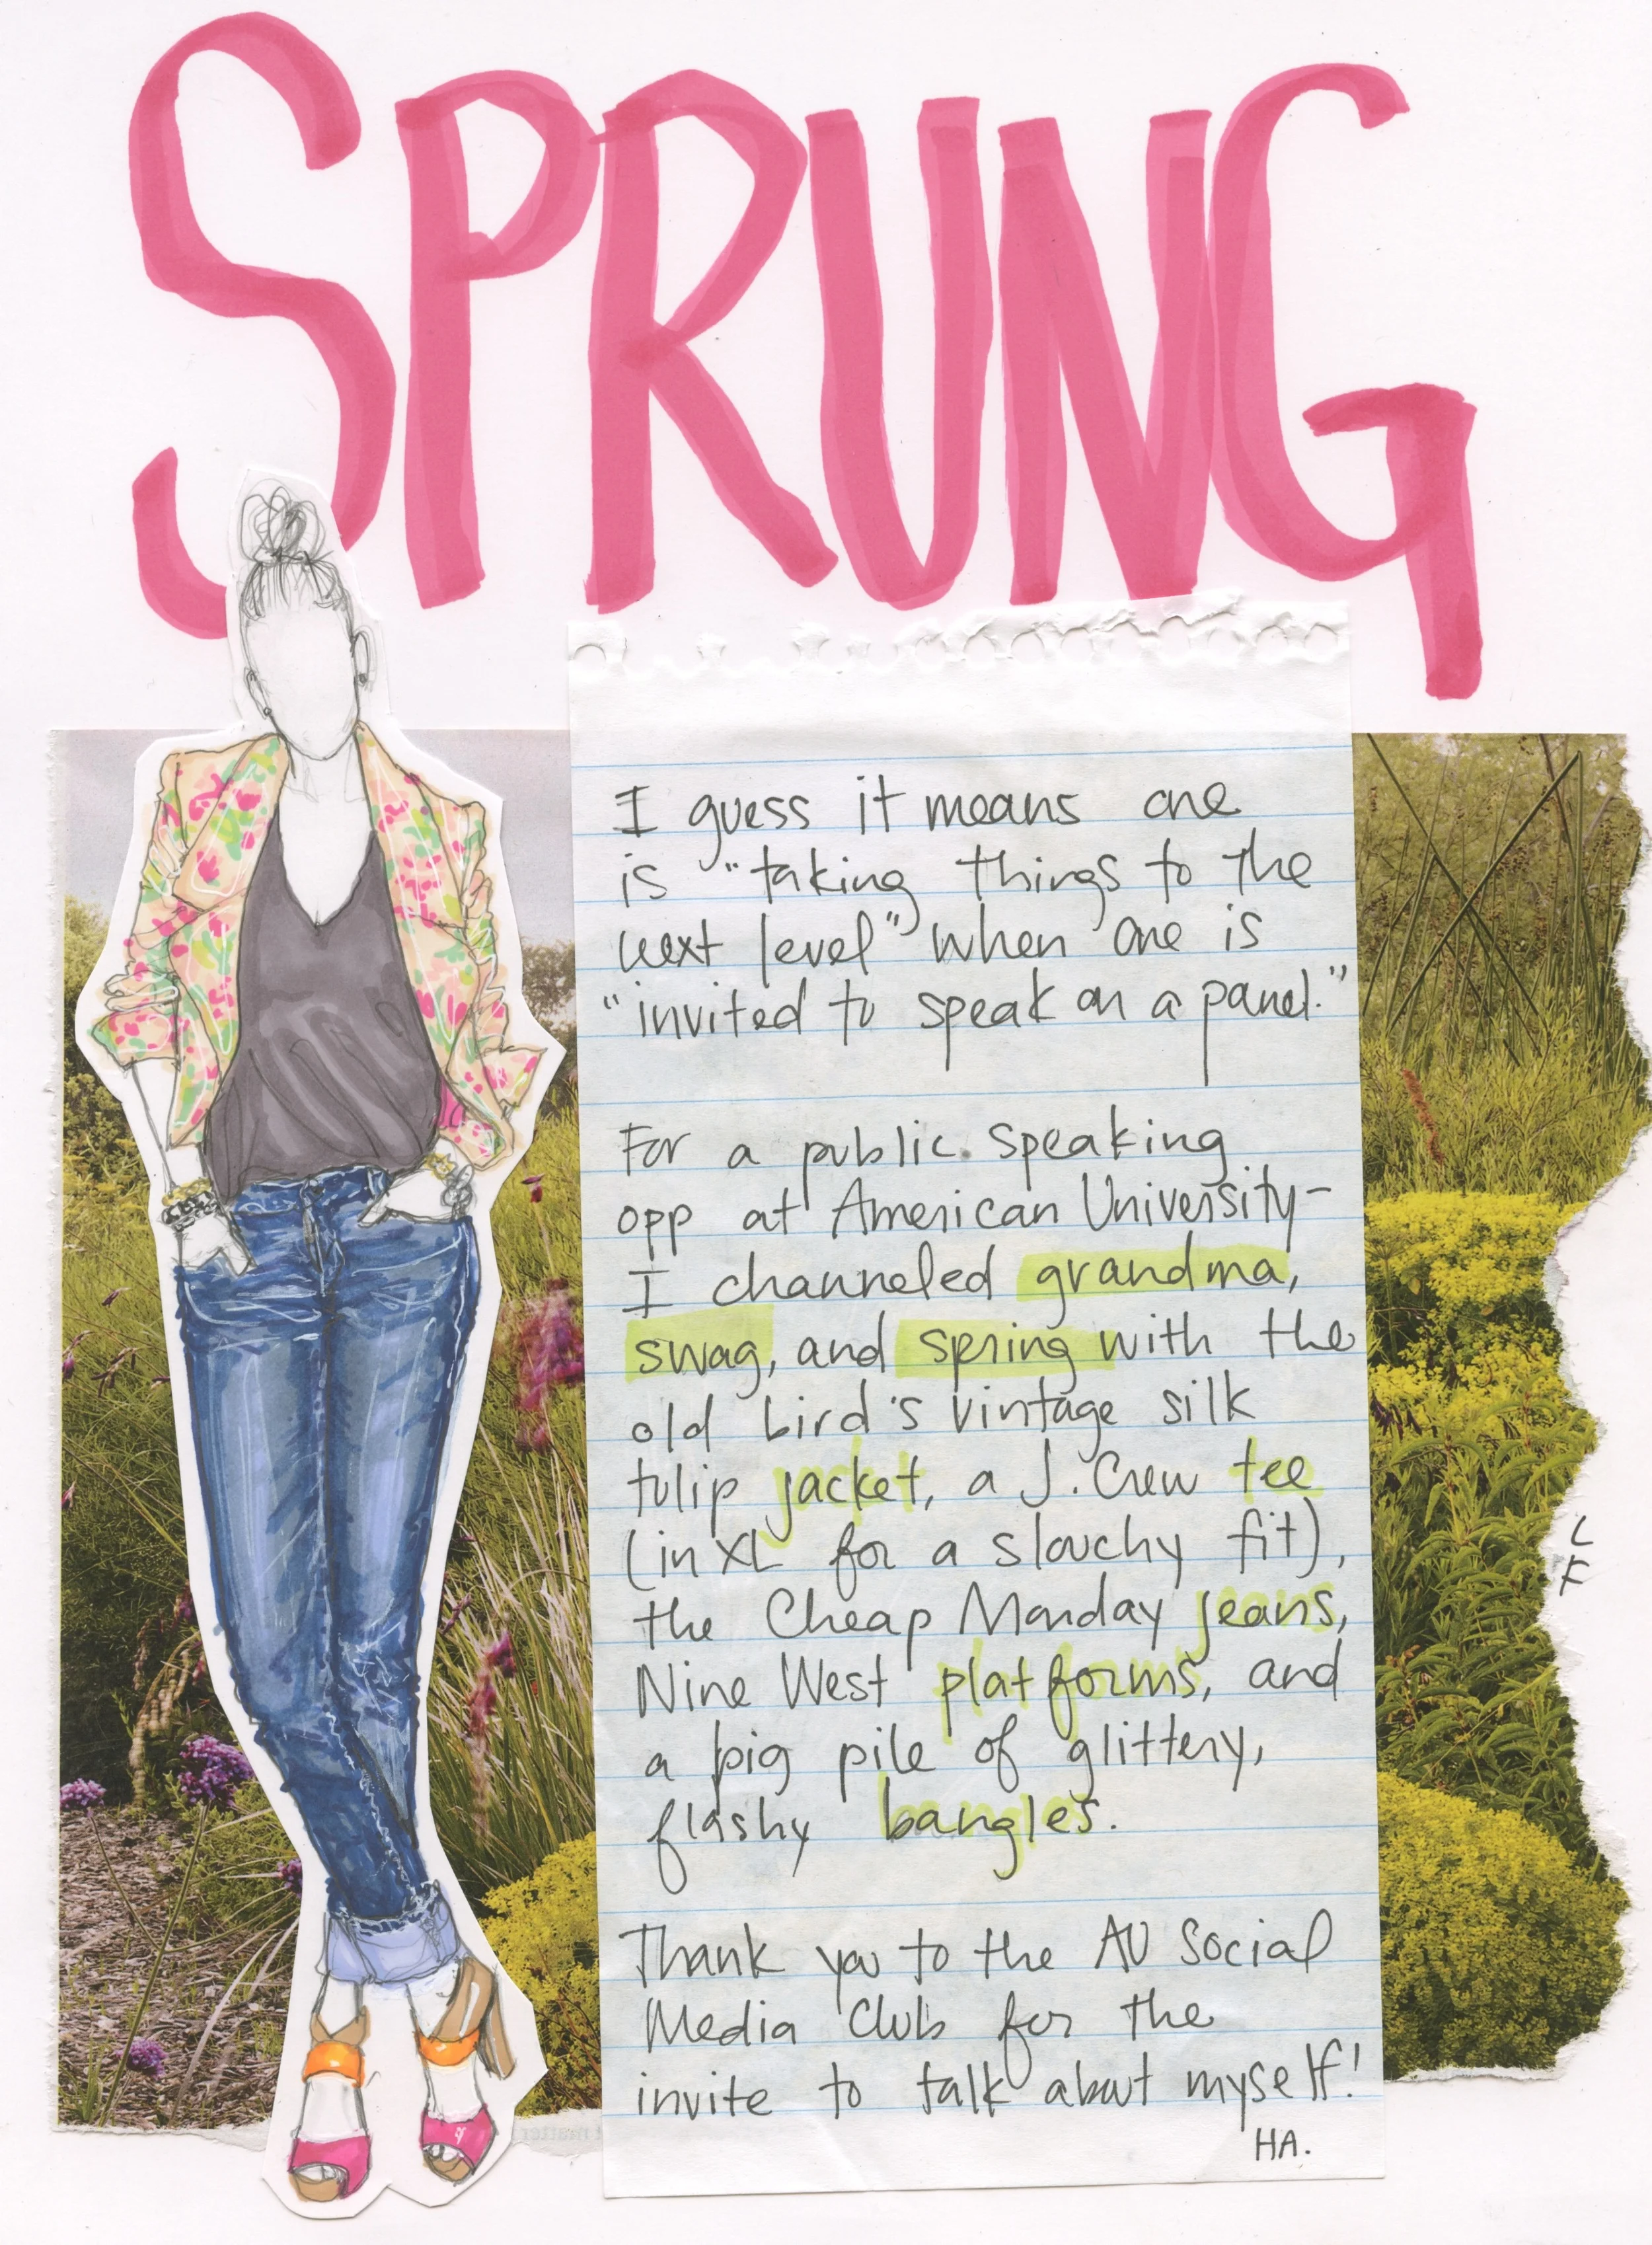 SPRUNG
I guess it means one
is "taking things to the
next level" when one is
"invited to speak on a panel."
For a public speaking
opp at American University-
I channeled grandma,
swag, and spring with the
old bird's vintage silk
tulip jacket, a J.Crew tee
(in XL for a slouchy fit),
the Cheap Monday jeans,
Nine West platforms, and
a big pile of glittery,
flashy bangles.
Thank you to the AU Social
Media Club for the
invite to talk about myself!
HA.
L
F